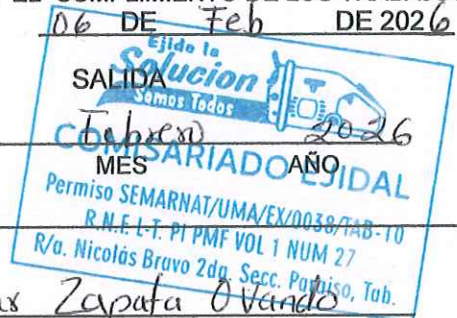 EL CUMPLIMIENTO DE LOS
06 DE Feb DE 2026
Ejido la
Solucion
Somos Todos
SALIDA
febrero 2026
MES AÑO
COMISARIADO EJIDAL
Permiso SEMARNAT/UMA/EX/0038/TAB-10
R.N.F. L-T. PI PMF VOL 1 NUM 27
R/a. Nicolás Bravo 2da. Secc. Paraiso, Tab.
Zapata Ovando